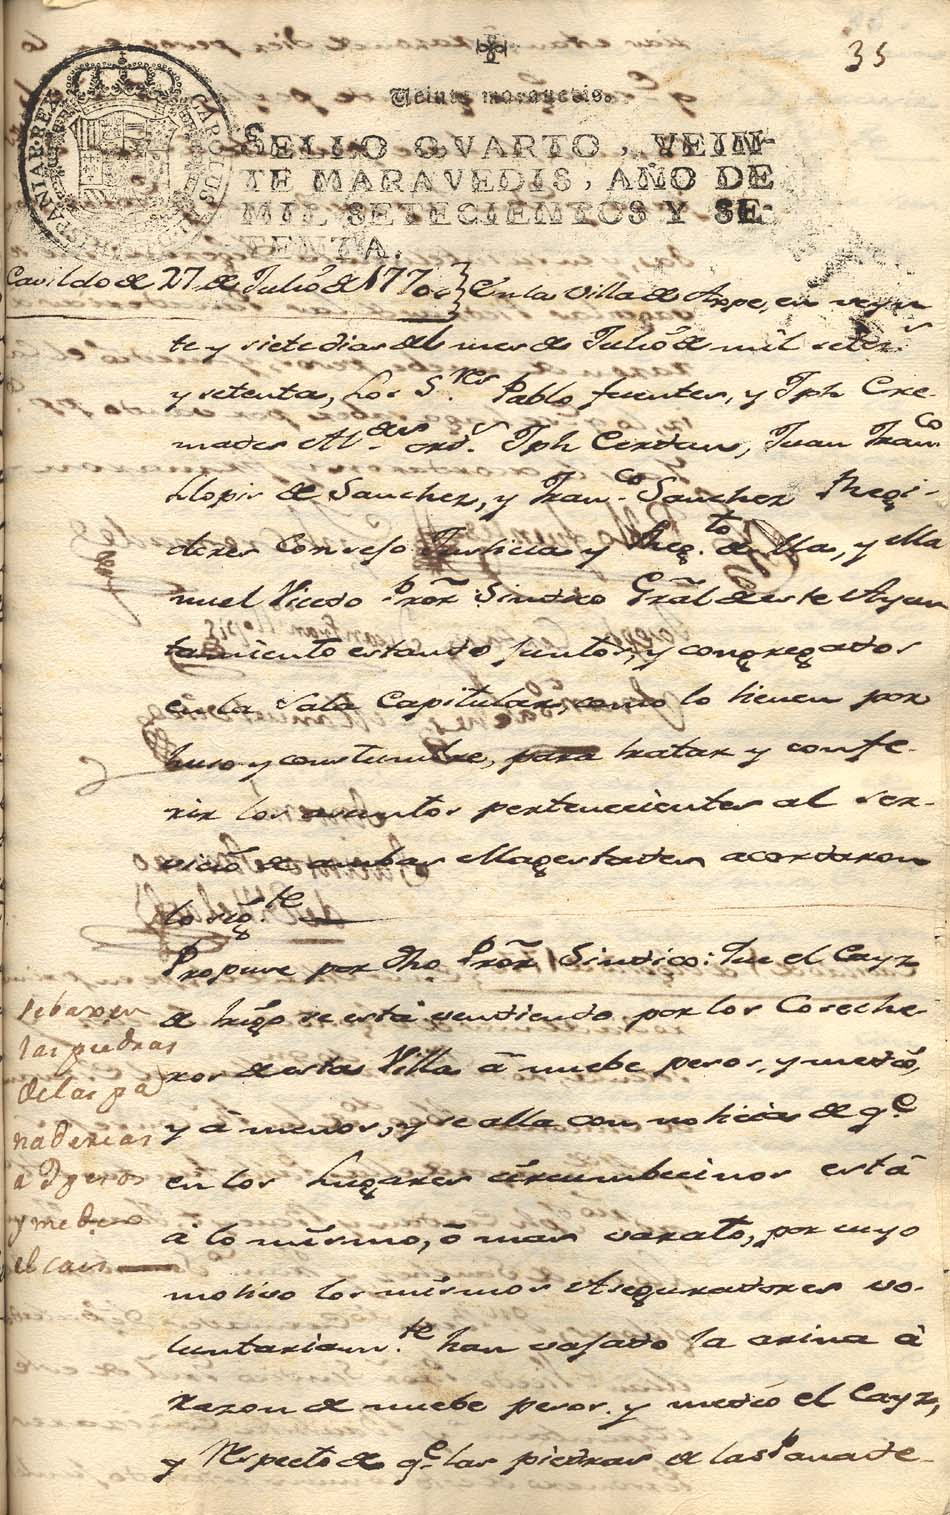 35
Veinte maravedis.
SELLO QVARTO, VEIN-
TE MARAVEDIS, AÑO DE
MIL SETECIENTOS Y SE-
TENTA.
CAROLUS HISPANIAR REX
Cavildo de 27 de Julio de 1770 En la Villa de Aspe, en veyn
te y siete dias del mes de Julio de mil setecs
y setenta, Los S.res Pablo fuentes, y Jph Cre-
mades Al.des ord.s Jph Cerdan, Juan Franco
Llopis de Sanchez, y Fran.co Sanchez Regi-
dores Consejo Justicia y Reg.to de ella, y Ma
nuel Vicedo Pror Sindico Gral de este Ayun
tamiento estando juntos, y congregados
en la Sala Capitular, como lo tienen por
huso y constumbre, para tratar y confe-
rir los asuntos pertenecientes al ser-
vicio de ambas Magestades acordaron
lo sig.te
Propuse por dho Pror Sindico: Que el Cayz
de trigo se está vendiendo por los Coseche-
ros de esta Villa á nuebe pesos, y medio,
y á menos, y se alla con noticia de q.e
en los Lugares circumbecinos está
á lo mismo, ó mas varato, por cuyo
motivo los mismos Aseguradores vo-
luntariam.te han vajado la arina á
razon de nuebe pesos y medio el Cayz,
y Respecto de q.e las piedras de las Panade-
se baxen
las piedras
de las pa
naderias
a 9 pesos
y medio
el cais